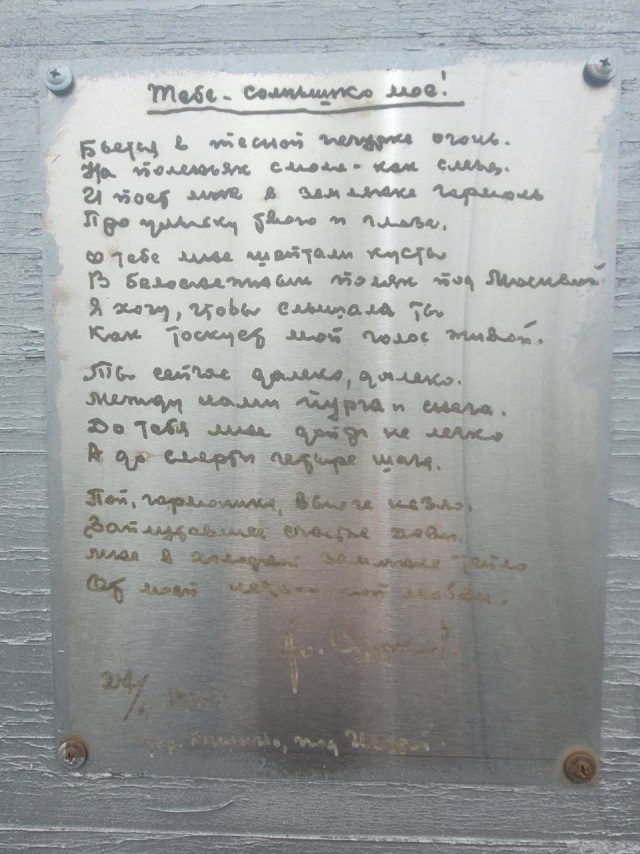 Тебе - солнышко мое!
Бьется в тесной печурке огонь.
На поленьях смола - как слеза.
И поет мне в землянке гармонь
Про улыбку твою и глаза.
О тебе мне шептали кусты
В белоснежных полях под Москвой
Я хочу, чтобы слышала ты
Как тоскует мой голос живой.
Ты сейчас далеко, далеко.
Между нами пурга и снега.
До тебя мне дойти не легко
А до смерти четыре шага.
Пой, гармоника, вьюге назло.
Заплутавшее счастье зови.
Мне в холодной землянке тепло
От моей негасимой любви.
дер. Кашино, под Истрой.